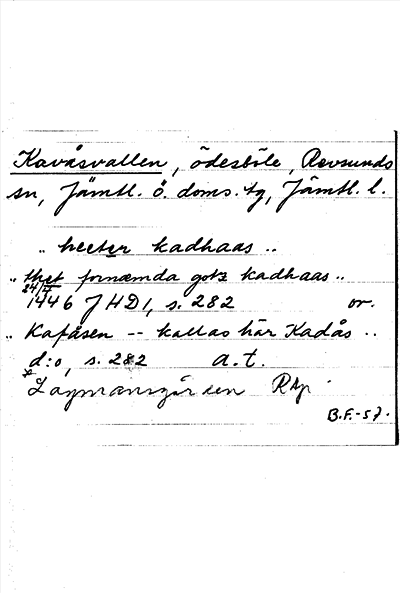 Kavåsvallen, ödesböle, Revsunds
sn, Jämtl. ö. doms. tg, Jämtl. l.
.. heeter kadhaas ..
.. thet fornæmda gotz kadhaas ..
24/4 1446 JHD1, s. 282 or.
.. Kafåsen -- kallas här Kadås ..
d:o, s. 282 a.t.
Lagmansgården
B.F.-57.